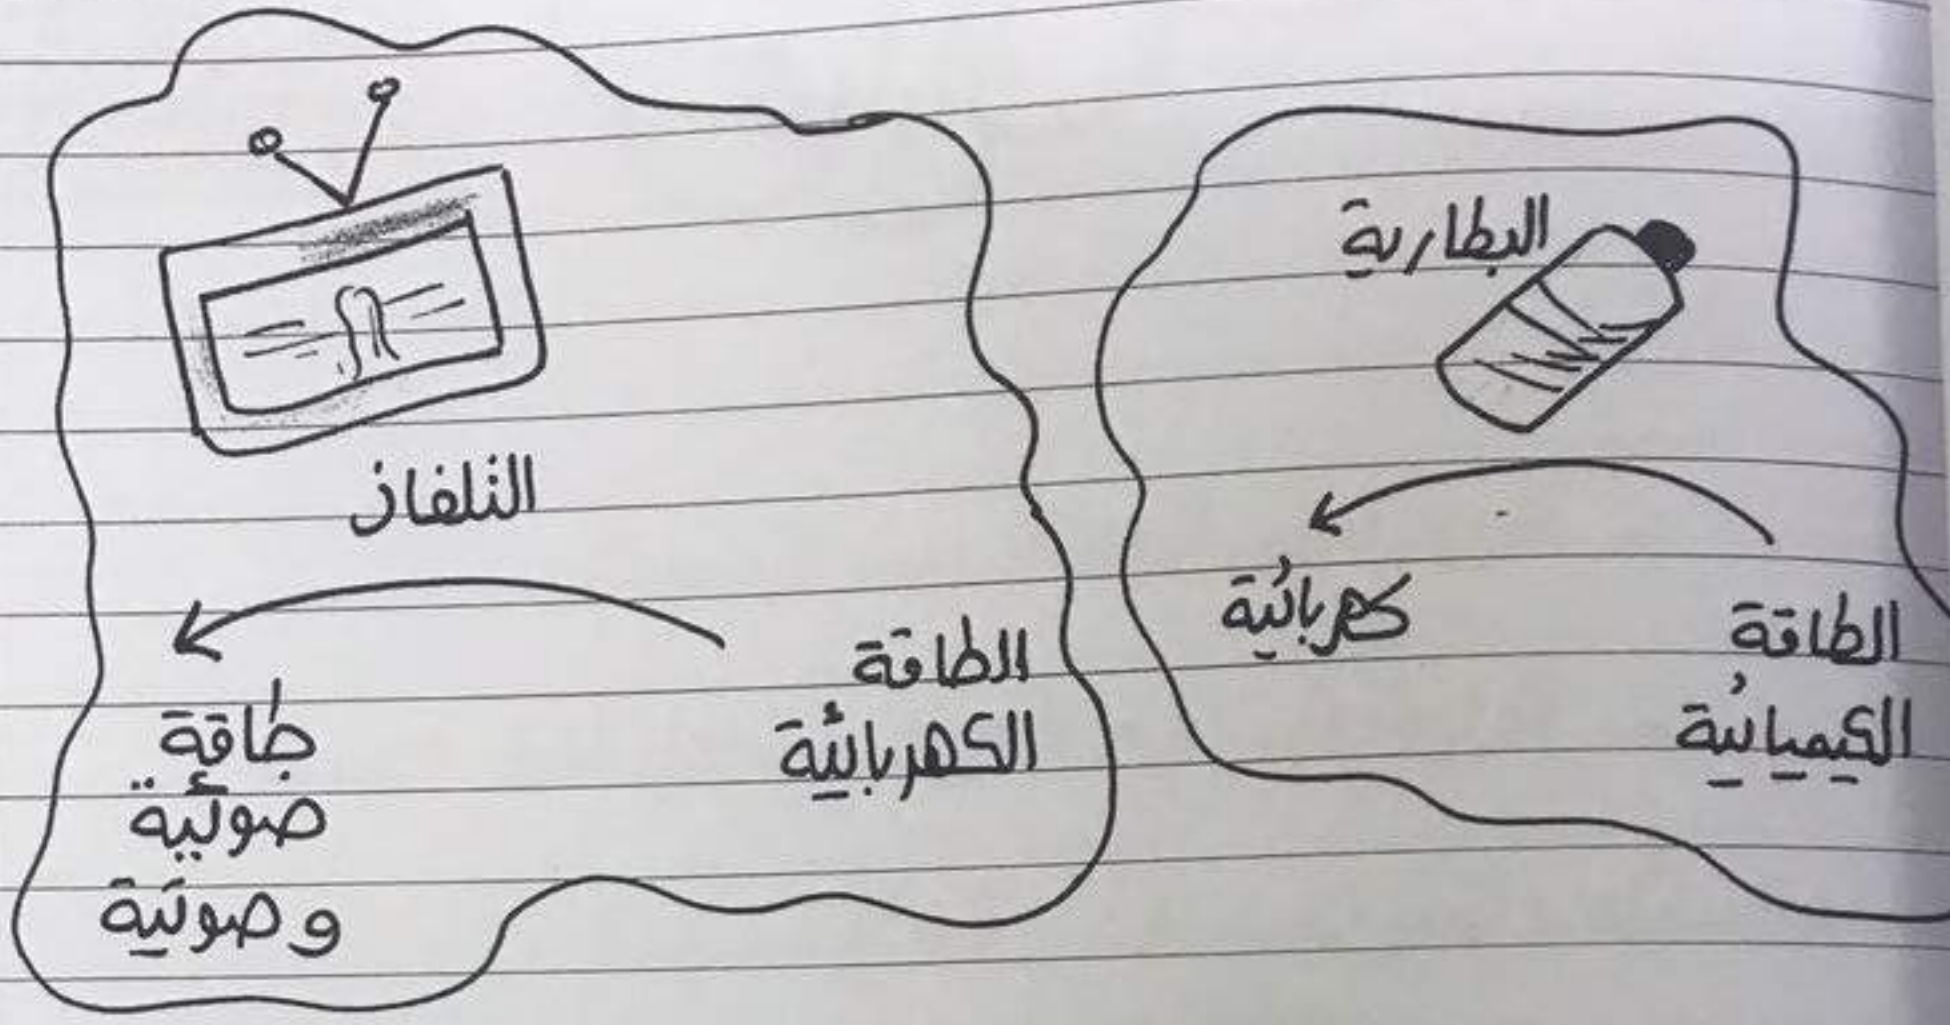 البطارية
الطاقة
الكيميائية
كهربائية
التلفاز
الطاقة
الكهربائية
طاقة
ضوئية
وصوتية